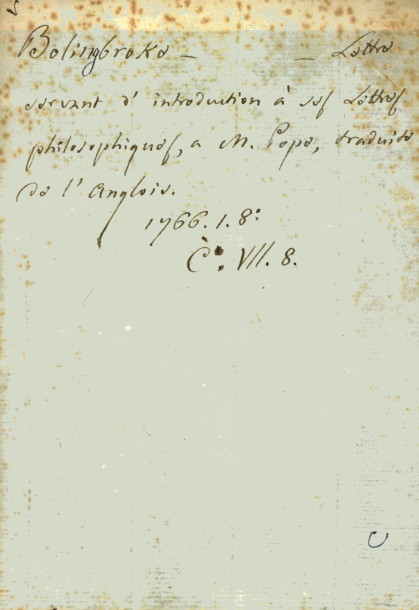 Bolingbroke — — Lettre
servant d'introduction à ses Lettres
philosophiques, a M. Pope, traduite
de l'Anglois.
1766. 1. 8º
C. VII. 8.